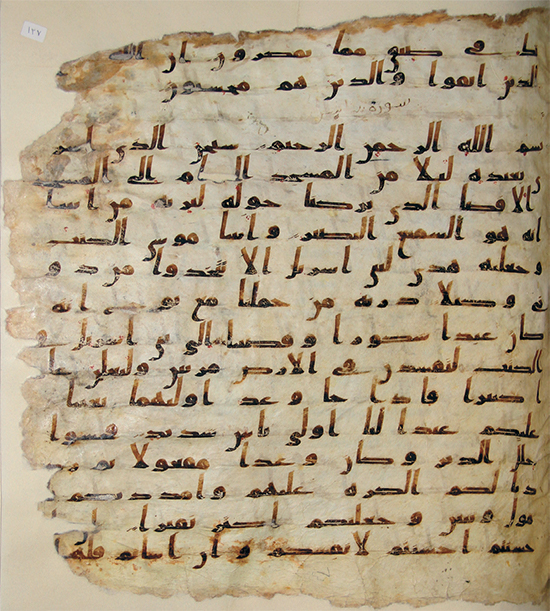 ١٢٧
ك في ضيق مما يمكرون ان الله
الذين اتقوا والذين هم محسنون
سورة بني
بسم الله الرحمن الرحيم سبحن الذي اسر
ى بعبده ليلا من المسجد الحرام الى المسجد
الاقصا الذي بركنا حوله لنريه من ايتنا
انه هو السميع البصير واتينا موسى الكتب
وجعلنه هدى لبني اسريل الا تتخذوا من دو
ني وكيلا ذرية من حملنا مع نوح انه
كان عبدا شكورا وقضينا الى بني اسريل في
الكتب لتفسدن في الارض مرتين ولتعلن علوا
كبيرا فاذا جا وعد اوليهما بعثنا
عليكم عبدا لنا اولي باس شديد فجاسوا
خلل الدير وكان وعدا مفعولا ثم رد
دنا لكم الكرة عليهم وامددنكم
مول وبنين وجعلنكم اكثر نفيرا ا
حسنتم احسنتم لانفسكم وان اساتم فلها